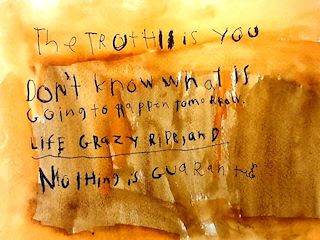 The TRUTH is you
DON't know what is
Going to Happen tomorrow.
LIFE CRAZY RIDE, and
NOTHING is GUARANTEED